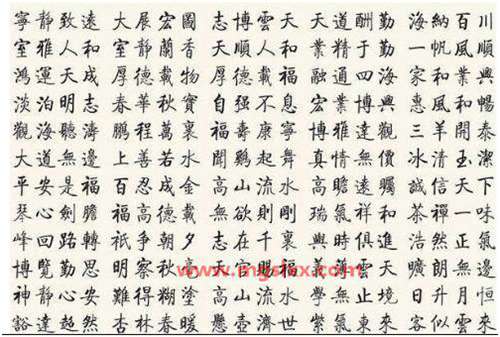 寧靜致遠 大展宏圖 志博雲天 天道酬勤 海納百川
室雅人和 室靜蘭香 順人和 業精于勤 一帆風順
鴻運天成 厚德載物 厚德載福 融通四海 家和業興
淡泊明志 春華秋實 自强不息 宏業博興 惠風和暢
觀海聽濤 鵬程萬裏 福壽康寧 博雅達觀 三羊開泰
大道無邊 上善若水 聞鷄起舞 真情無價 冰清玉潔
平安是福 百忍成金 高山流水 高瞻遠矚 誠信天下
琴心劍膽 福高德載 無欲則剛 瑞氣祥和 茶禪一味
峰回路轉 祇争朝夕 志在千裏 與時俱進 浩然正氣
博覽勤思 明察秋毫 天官賜福 義薄雲天 曠朗無邊
神靜心安 難得糊塗 高山流水 學無止境 日升月恒
豁達超然 杏林春暖 懸壺濟世 紫氣東來 客似雲來